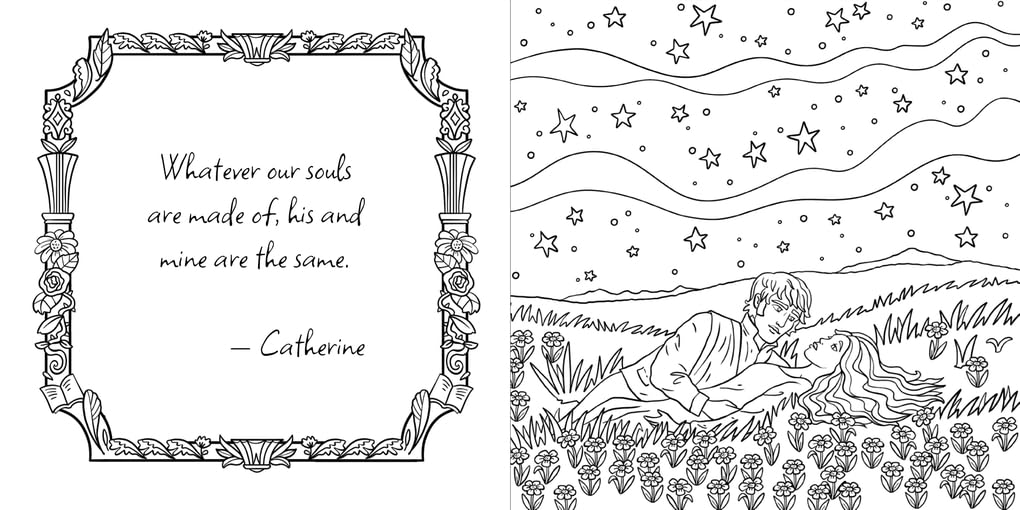 Whatever our souls
are made of, his and
mine are the same.
— Catherine